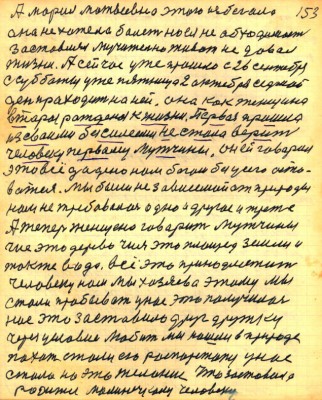 153
А мария матвеевна этого не бегала
она не хотела болеть но ей не обходимо
заставлял мучительно живот не давал
жизни. А сейчас уже прошло с 26 сентября
с субботы уже пятница 2 октября седмой
ден праходит на ней, она как женщина
втарая рождена к жизни. А первая пришла
из своими бы силами не стала верит
человеку первому мужчины, он ей говарил
это всё дадено нам богом бы у его
. Мы были не зависимой от природы
нам не требовалося одно и другое и третє
А теперь женщина говарит мужчины
чие это дерево чия это площед земли и
также вада. всё это принодлежит
человеку нам мы хозяева этому мы
стали прабыват у нас это получилося
нас это заставило друг дружку
через условие любит мы нашли в природе
пахат стали его распахали у нас
стало на это желание это заставило
родить малинечкому человеку